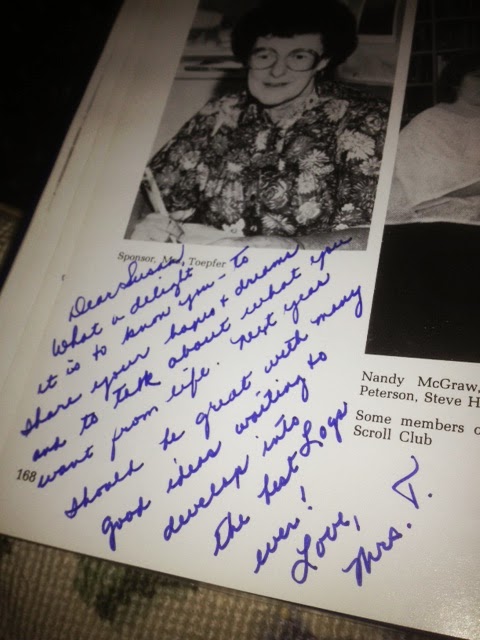 Sponsor, M Toepfer
Dear Susan,
What a delight
it is to know you - to
share your hopes + dreams
and to talk about what you
want from life. Next year
should be great with many
good ideas waiting to
develop into
the best Logs
ever!
Love,
Mrs. T.
168
Nandy McGraw,
Peterson, Steve H
Some members o
Scroll Club